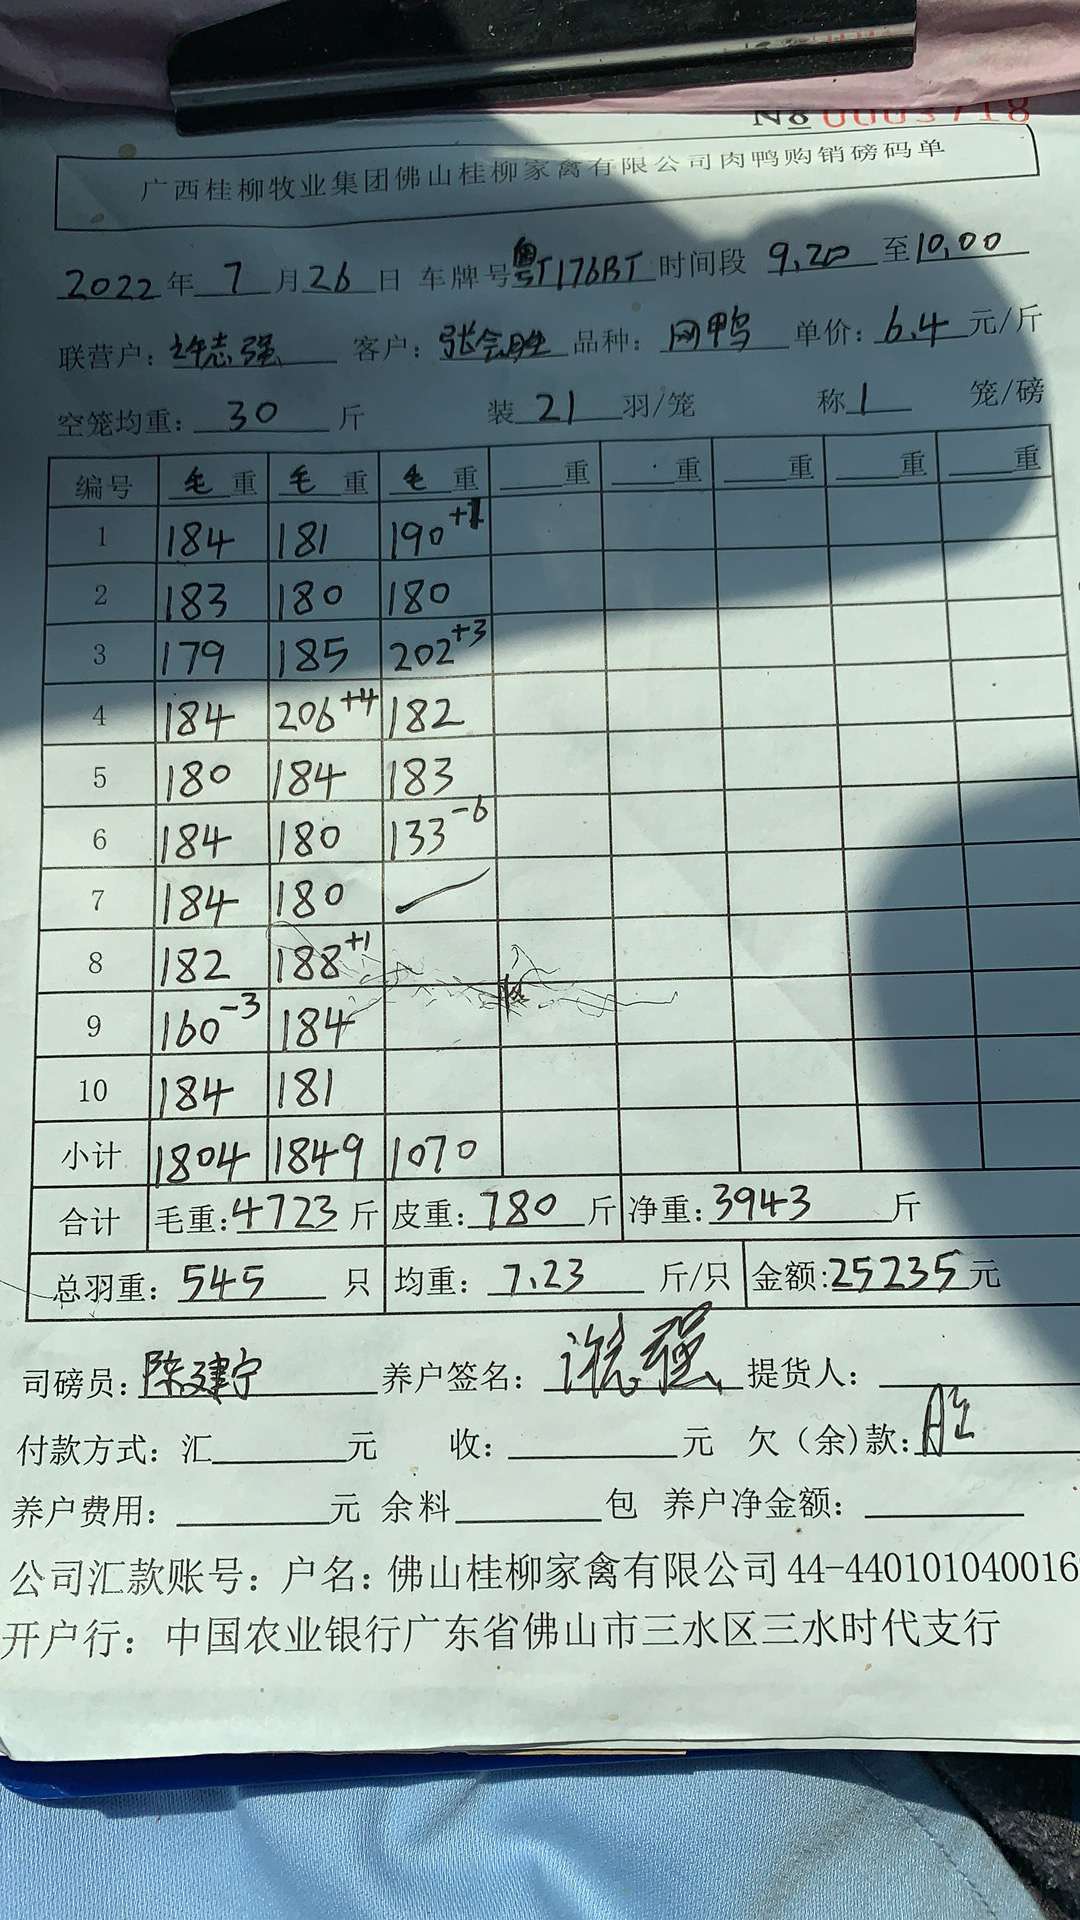 № 0003718
广西桂柳牧业集团佛山桂柳家禽有限公司肉鸭购销磅码单
2022年7月26日 车牌号粤T176BT时间段 9.20至10.00
联营户：许志强 客户：张会胜 品种：网鸭 单价：6.4元/斤
空笼均重：30斤 装21羽/笼 称1笼/磅
编号 毛重 毛重 毛重 重 重 重 重 重
1 184 181 190+1
2 183 180 180
3 179 185 202+3
4 184 206+4 182
5 180 184 183
6 184 180 133-6
7 184 180
8 182 188+1
9 160-3 184
10 184 181
小计 1804 1849 1070
合计 毛重:4723斤 皮重:780斤 净重:3943斤
总羽重：545只 均重：7.23斤/只 金额:25235元
司磅员：陈建宁 养户签名：许志强 提货人：
付款方式：汇 元 收： 元 欠（余)款：胜
养户费用： 元 余料 包 养户净金额：
公司汇款账号：户名：佛山桂柳家禽有限公司 44-440101040016
开户行：中国农业银行广东省佛山市三水区三水时代支行